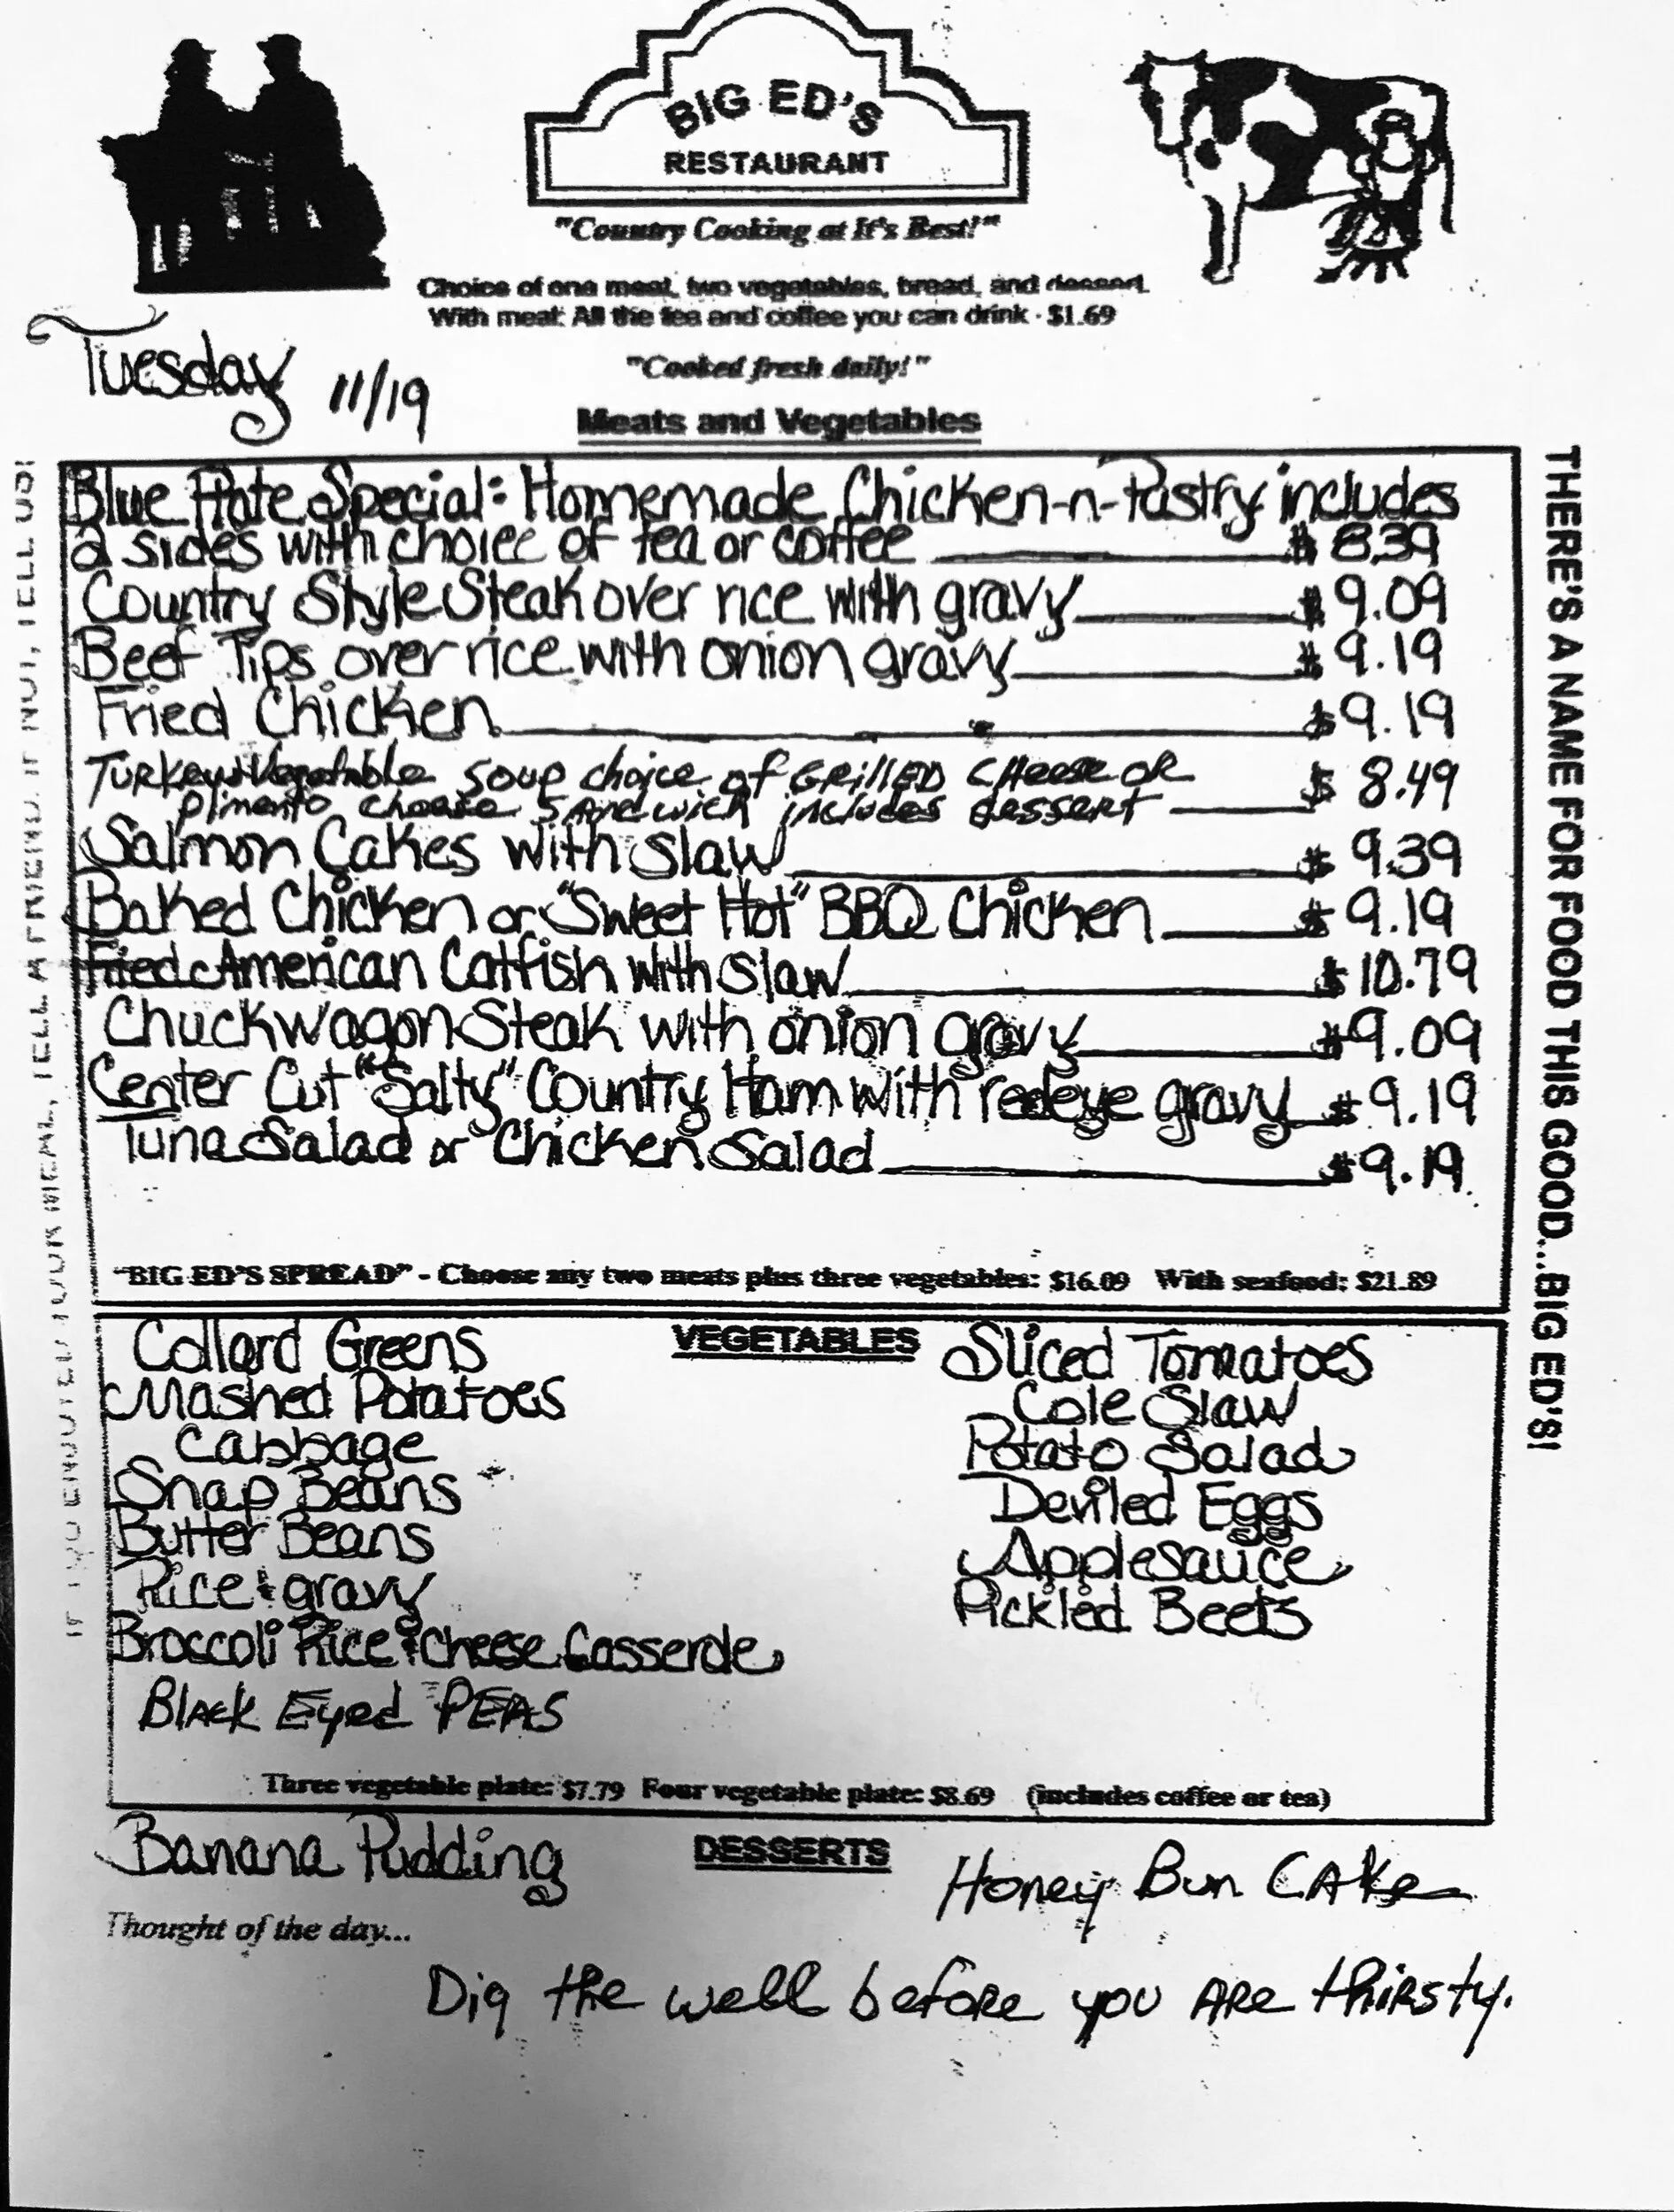 BIG ED'S
RESTAURANT
"Country Cooking at It's Best!"
Choice of one meat, two vegetables, bread, and dessert.
With meat: All the tea and coffee you can drink - $1.69
"Cooked fresh daily!"
Tuesday 11/19
Meats and Vegetables
Blue Plate Special: Homemade Chicken-n-Pastry includes
2 sides with choice of tea or coffee $ 8.39
Country Style Steak over rice with gravy $ 9.09
Beef Tips over rice with onion gravy $ 9.19
Fried Chicken $ 9.19
Turkey Vegetable soup choice of GRILLED CHEESE OR
Pimento cheese sandwich includes dessert $ 8.49
Salmon Cakes with slaw $ 9.39
Baked Chicken or "Sweet Hot" BBQ Chicken $ 9.19
Fried American Catfish with slaw $ 10.79
Chuckwagon Steak with onion gravy $ 9.09
Center Cut "Salty" Country Ham with redeye gravy $ 9.19
Tuna Salad or Chicken Salad $ 9.19
"BIG ED'S SPREAD" - Choose any two meats plus three vegetables: $16.09 With seafood: $21.89
VEGETABLES
Collard Greens
Mashed Potatoes
Cabbage
Snap Beans
Butter Beans
Rice & gravy
Broccoli Rice & Cheese Casserole
Black Eyed PEAS
Sliced Tomatoes
Cole Slaw
Potato Salad
Deviled Eggs
Applesauce
Pickled Beets
Three vegetable plate: $7.79 Four vegetable plate: $8.69 (includes coffee or tea)
DESSERTS
Banana Pudding
Honey Bun CAKe
Thought of the day...
Dig the well before you ARe thirsty.
IF YOU ENJOYED YOUR MEAL, TELL A FRIEND. IF NOT, TELL US!
THERE'S A NAME FOR FOOD THIS GOOD...BIG ED'S!